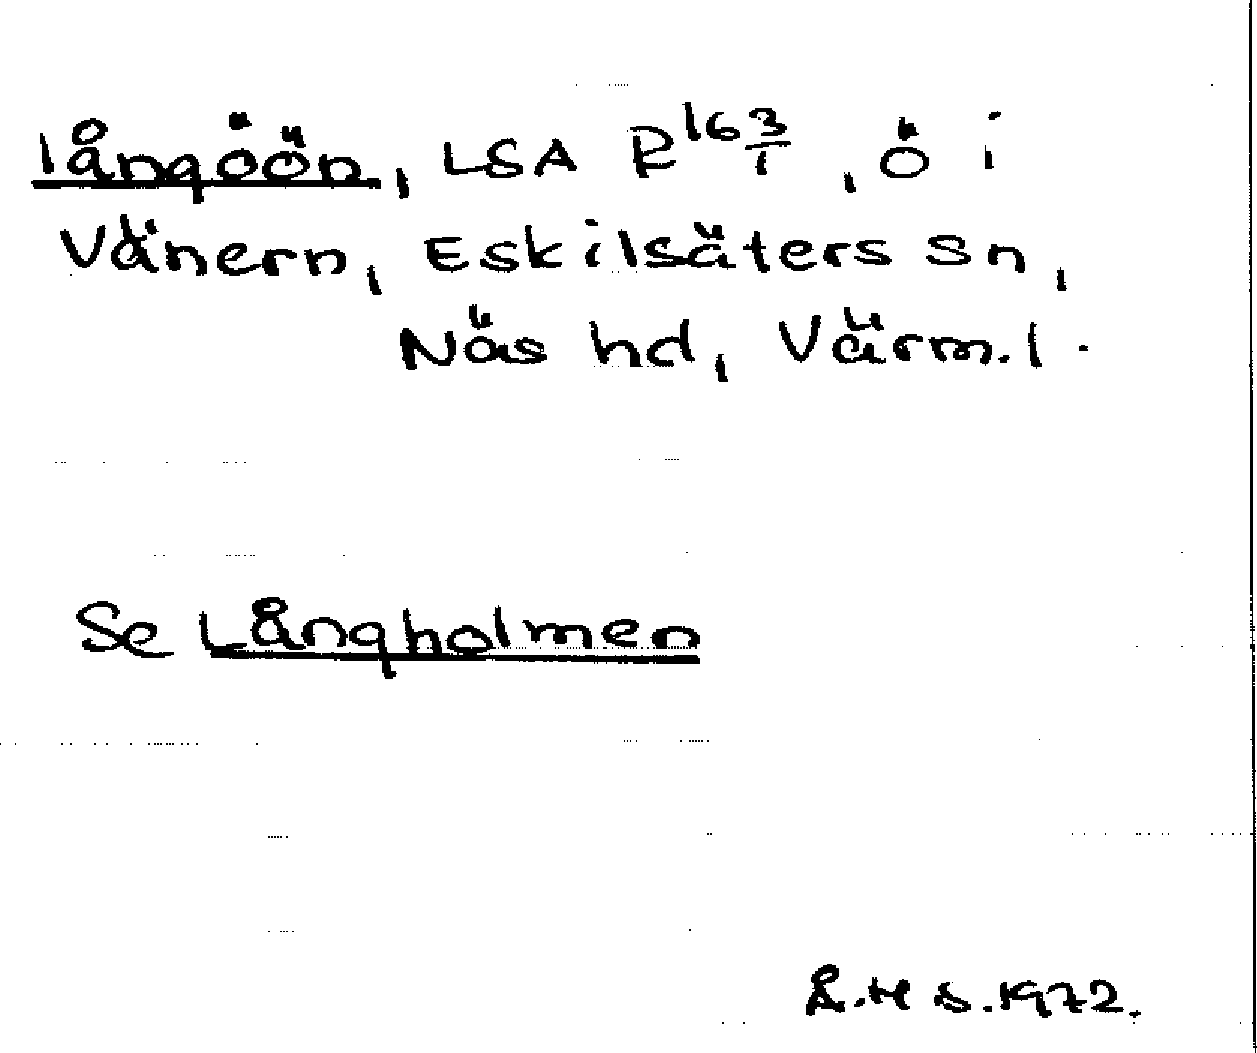 långöön, LSA R 163/1, ö i
Vänern, Eskilsäters sn,
Näs hd, Värm.l.
Se Långholmen
Å.H S.1972.